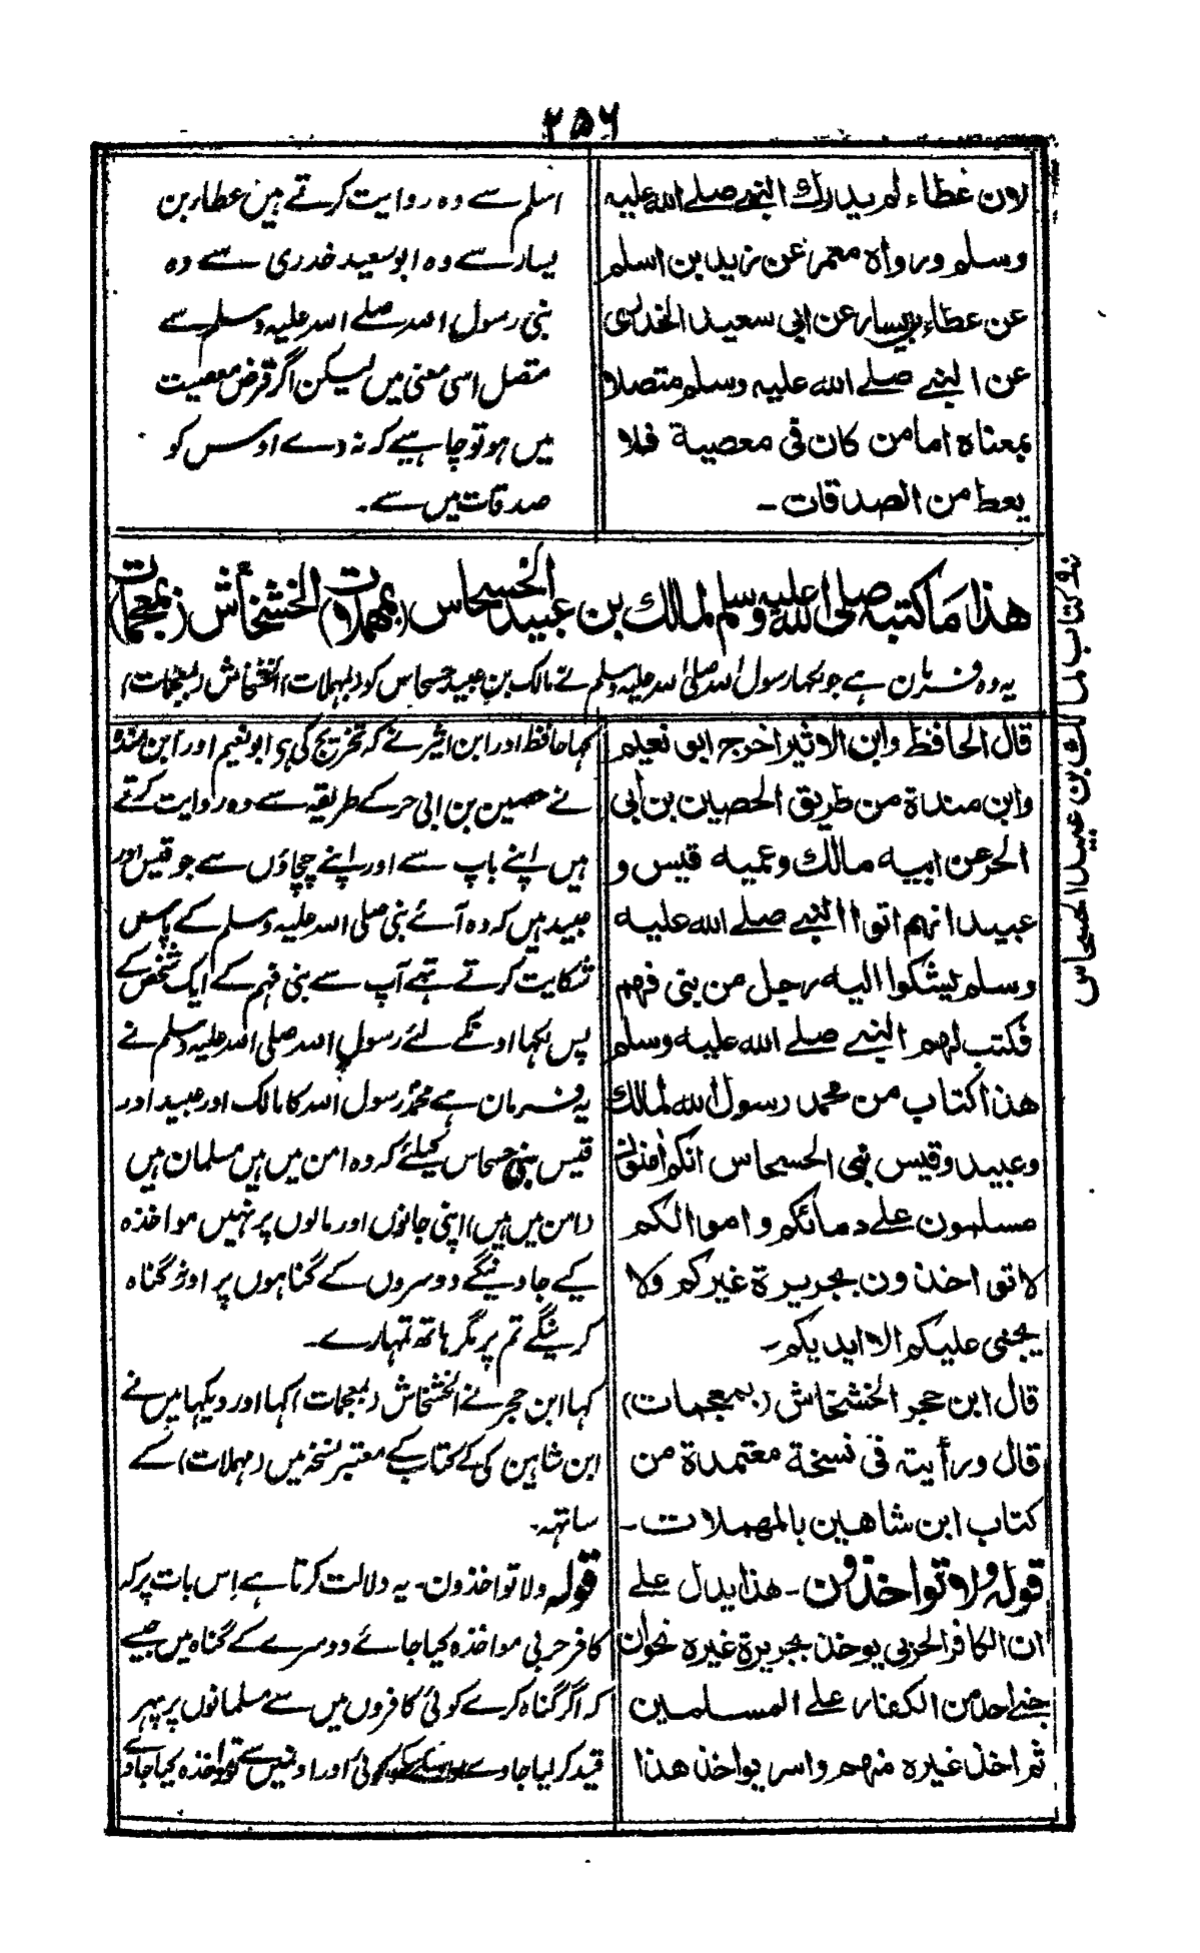 ۲۵۶
لان عطاء لم يدرك النبي صلے الله عليه
وسلم ورواه معمر عن زيد بن اسلم
عن عطاء بن يسار عن ابي سعيد الخدري
عن النبي صلے الله عليه وسلم متصلا
بمعناه اما من كان في معصية فلا
يعط من الصدقات -
اسلم سے وہ روایت کرتے ہیں عطار بن
یسار سے وہ ابو سعید خدری سے وہ
نبی رسول اللہ صلے اللہ علیہ وسلم سے
متصل اسی معنی میں لیکن اگر قرض معصیت
میں ہو تو چاہیے کہ نہ دے اوس کو
صدقات میں سے۔
هذا ما كتبه صلى الله عليه وسلم لمالك بن عبيد الخسحاس (بمهملات) الخشخاش (بمعجمات)
یہ وہ فرمان ہے جو لکھا رسول اللہ صلی اللہ علیہ وسلم نے مالک بن عبید حسحاس کو (بمہملات) الخشخاش (بمعجمات)
نوكتاب لمالك بن عبيد الحسحاس
قال الحافظ وابن الاثير اخرج ابو نعيم
وابن مندة من طريق الحصين بن أبي
الحر عن ابيه مالك وعميه قيس و
عبيد انهم اتوا النبي صلے الله عليه
وسلم يشكوا اليه رجل من بني فهم
فكتب لهم النبي صلے الله عليه وسلم
هذا كتاب من محمد رسول الله لمالك
وعبيد وقيس بني الحسحاس انكم امنون
مسلمون علے دمائكم واموالكم
لا تواخذون بجريرة غيركم ولا
يجنى عليكم الا ايديكم-
قال ابن حجر الخشخاش (بمعجمات)
قال ورأيته في نسخة معتمدة من
كتاب ابن شاهين بالمهملات -
قوله ولا تواخذون - هذا يدل علے
ان الكافر الحربي يوخذ بجريرة غيره نحو ان
جنى احد من الكفار علے المسلمين
ثم اخذ غيره منهم واسر يواخذ هذا
کہا حافظ اور ابن اثیر نے کہ تخریج کی ہی ابو نعیم اور ابن مندہ
نے حصین بن ابی حر کے طریقہ سے وہ روایت کرتے
ہیں اپنے باپ سے اور اپنے چچاؤں سے جو قیس اور
عبید ہیں کہ وہ آئے نبی صلی اللہ علیہ وسلم کے پاس
شکایت کرتے تہے آپ سے بنی فہم کے ایک شخص کے
پس لکہا اونکے لئے رسول اللہ صلی اللہ علیہ وسلم نے
یہ فرمان ہے محمد رسول اللہ کا مالک اور عبید اور
قیس بنی حسحاس کیلئے کہ وہ امن میں ہیں مسلمان ہیں
(امن میں ہیں) اپنی جانوں اور مالوں پر نہیں مواخذہ
کیے جاوینگے دوسروں کے گناہوں پر اور نہ گناہ
کرینگے تم پر مگر ہاتھ تمہارے۔
کہا ابن حجر نے الخشخاش (بمعجمات) کہا اور دیکہا میں نے
ابن شاہین کی کتاب کے معتبر نسخہ میں (مہملات) کے
ساتہہ۔
قوله ولا تواخذون۔ یہ دلالت کرتا ہے اس بات پر کہ
کافر حربی مواخذہ کیا جائے دوسرے کے گناہ میں جیسے
کہ اگر گناہ کرے کوئی کافروں میں سے مسلمانوں پر پہر
قید کر لیا جاوے کوئی اور اونمیں سے تو مواخذہ کیا جاوے